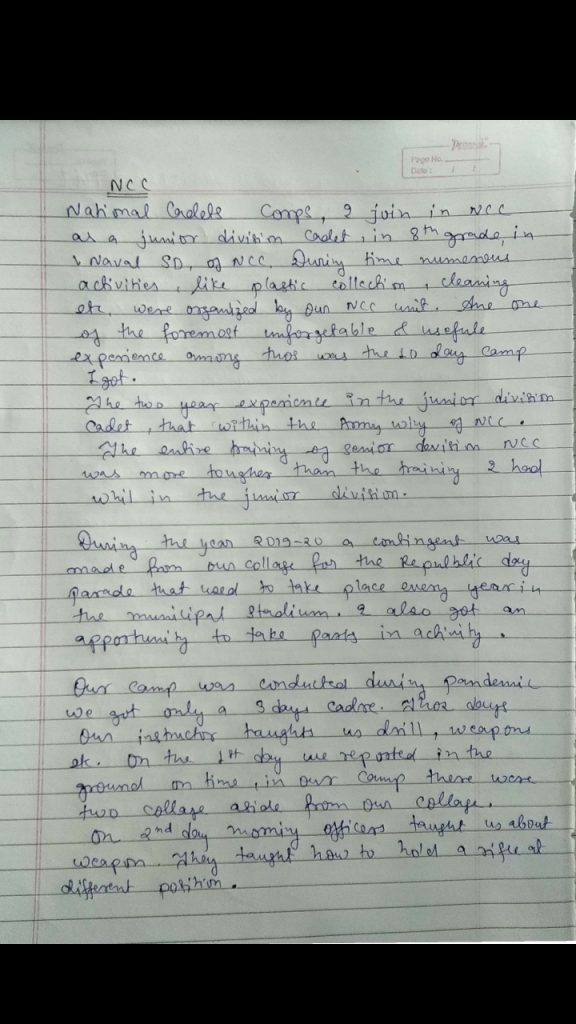 "Personal"
Page No.
Date: / /
NCC
National Cadets Corps, I join in NCC
as a junior division Cadet, in 8th grade, in
Naval SD, of NCC. During time numerous
activities, like plastic collection, cleaning
etc, were organized by our NCC unit. One one
of the foremost unforgetable & usefule
experience among thos was the 10 day camp
I got.
The two year experience in the junior division
Cadet, that within the Army wing of NCC.
The entire training of senior devision NCC
was more tougher than the training I had
whil in the junior division.
During the year 2019-20 a contingent was
made from our collage for the Republic day
parade that used to take place every year in
the municipal stadium. I also got an
apportunity to take parts in activity.
Our camp was conducted during pandemic
we got only a 3 days cadre. Thos days
our instructor taughts us drill, weapons
etc. On the 1st day we reported in the
ground on time, in our camp there were
two collage aside from our collage.
On 2nd day morning officers taught us about
weapon. They taught how to hold a rifle at
different position.